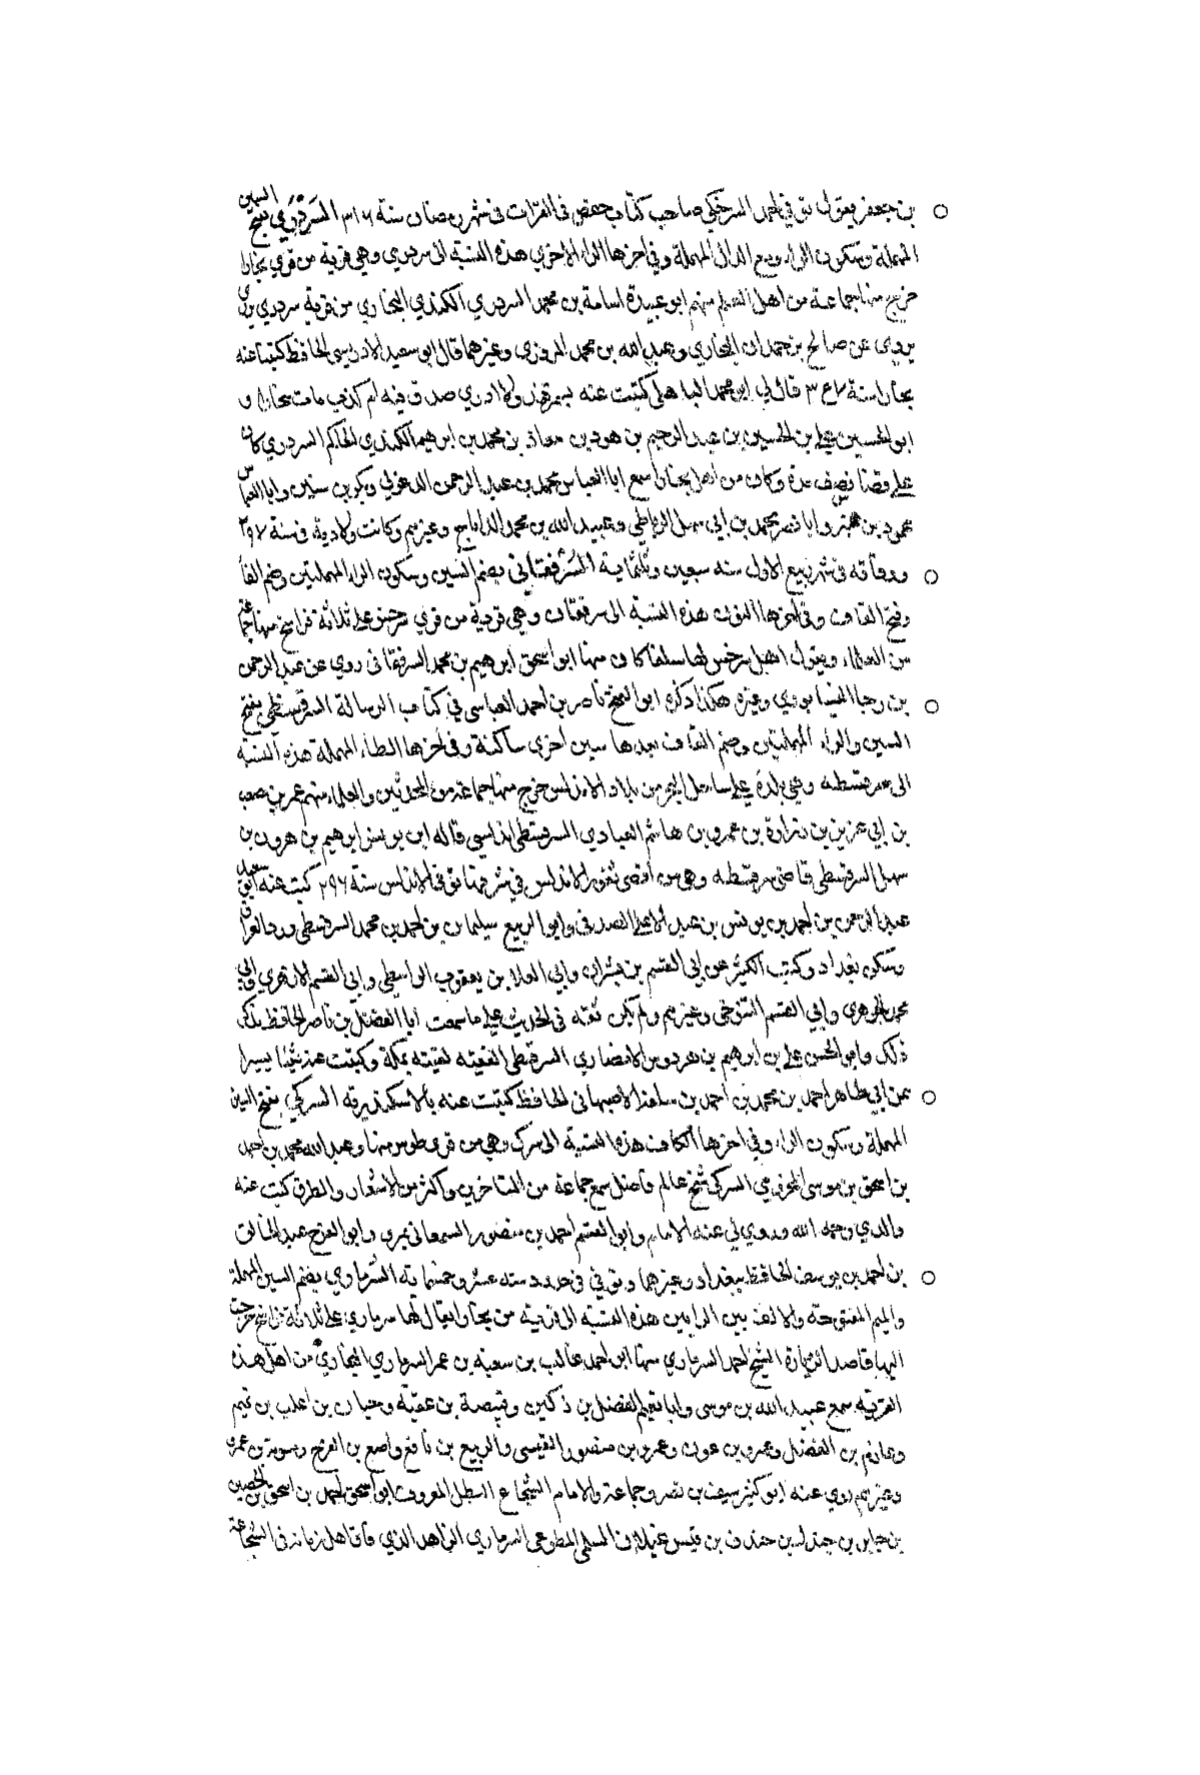 بن جعفر يقول توفي احمد السرخكي صاحب كتاب حفص في القرات في شهر رمضان سنة ٣١٦ السردري بفتح السين
المهملة وسكون الراء وضم الدال المهملة وفي اخرها الراء الاخرى هذه النسبة الى سردري وهي قرية من قرى بخارا
خرج منها جماعة من اهل العلم منهم ابو عبيدة اسامة بن محمد السردري الكمندي البخاري من قرية سردري يروي
يروى عن صالح بن حمدان البخاري وعبد الله بن محمد المروزي وغيرهما قال ابو سعيد الادريسي الحافظ كتبنا عنه
بخارا سنة قال لي ابو محمد الباهلي كتبت عنه بسمرقند ولا ادري صدق فيه ام كذب مات بخارا و
ابو الحسين علي بن الحسين بن عبد الرحيم بن هود بن معاذ بن محمد بن ابرهيم الكمندي الحاكم السردري كان
على قضا نسف مدة وكان من اهل بخارا سمع ابا العباس محمد بن عبد الرحمن الدغولي وبكر بن وابا العباس
محمود بن عنبر وابا نصر محمد بن ابي سهل الرباطي وعبيد الله بن محمد وغيرهم وكانت ولادته في سنة ٢٩٧
ووفاته في شهر ربيع الاول سنه سبعين وثلثماية السرفقاني بضم السين وسكون الراء المهملتين وضم الفا
وفتح القاف وفي اخرها النون هذه النسبة الى سرفقان وهي قرية من قرى سرخس على ثلاثة فراسخ منها جماعة
من العلماء ويقول اهل سرخس لها سلفكان منها ابو اسحق ابرهيم بن محمد السرفقاني روي عن عبد الرحمن
بن رجا النيسابوري وغيره هكذا ذكره ابو الفتح ناصر بن احمد العباسي في كتاب الرسالة السرقسطي بفتح
السين والراء المهملتين وضم القاف بعدها سين اخرى ساكنة وفي اخرها الطاء المهملة هذه النسبة
الى سرقسطه وهي بلدة على ساحل البحر من بلاد الاندلس خرج منها جماعة من المحدثين والعلماء منهم عمر بن مصعب
بن ابي عزيز بن زرارة بن عمرو بن هاشم العبادي السرقسطي اندلسي قاله ابن يونس ابرهيم بن هرون بن
سهل السرقسطي قاضي سرقسطه وهي من اقصى ثغور الاندلس في شرقها توفي بالاندلس سنة ٢٩٦ كتب عنه ابو سعيد
عبد الرحمن بن احمد بن يونس بن عبد الاعلى الصدفي وابو الربيع سليمان بن احمد بن محمد السرقسطي ورد العراق
وسكن بغداد وكتب الكثير عن ابي القسم بن بشران وابي العلا بن يعقوب الواسطي وابي القسم الازهري وابي
محمد الجوهري وابي القسم التنوخي وغيرهم ولم يكن ثقه في الحديث على ما سمعت ابا الفضل بن ناصر الحافظ يذكر
ذلك وابو الحسن علي بن ابرهيم بن الانصاري السرقسطي الفقيه لقيته بمكة وكتبت عنه شيئا يسيرا
عن ابي طاهر احمد بن محمد بن احمد بن سلفة الاصبهاني الحافظ كتبت عنه بالاسكندريه السركي بفتح السين
المهملة وسكون الراء وفي اخرها الكاف هذه النسبة الى سرك وهي من قرى طوس منها وعبد الله محمد بن احمد
بن اسحق بن موسى السركي شيخ عالم فاضل سمع جماعة من المتاخرين واكثر من الاشعار والطرق كتب عنه
والدي رحمه الله وروى لي عنه الامام وابو القسم احمد بن منصور السمعاني بمرو وابو الفرج عبد الخالق
بن احمد بن يوسف الحافظ ببغداد وغيرهما وتوفي في حدود سنه عشر وخمسمائه السرماري بضم السين المهملة
والميم المفتوحة والالف بين الرايين هذه النسبه الى قرية من بخارا يقال لها سرماري على ثلاثة فراسخ خرجت
اليها قاصدا لزيارة الشيخ احمد السرماري منها ابو احمد غالب بن سعيد بن عمر السرماري البخاري من اهل هذه
القريه سمع عبيد الله بن موسى وابا نعيم الفضل بن دكين وقبيصة بن عقبة وحيان بن اغلب بن تميم
وعارم بن الفضل وعمرو بن عون وعمرو بن منصور القيسي والربيع بن نافع واصبغ بن الفرج وسويد بن عمرو
وغيرهم روي عنه ابو كثير سيف بن نصر وجماعة والامام الشجاع البطل المعروف ابو اسحق احمد بن اسحق بن الحصين
بن جابر بن جندل بن خندف بن قيس عيلان السلمي المطوعي السرماري الزاهد الذي فاق اهل زمانه في الشجاعة